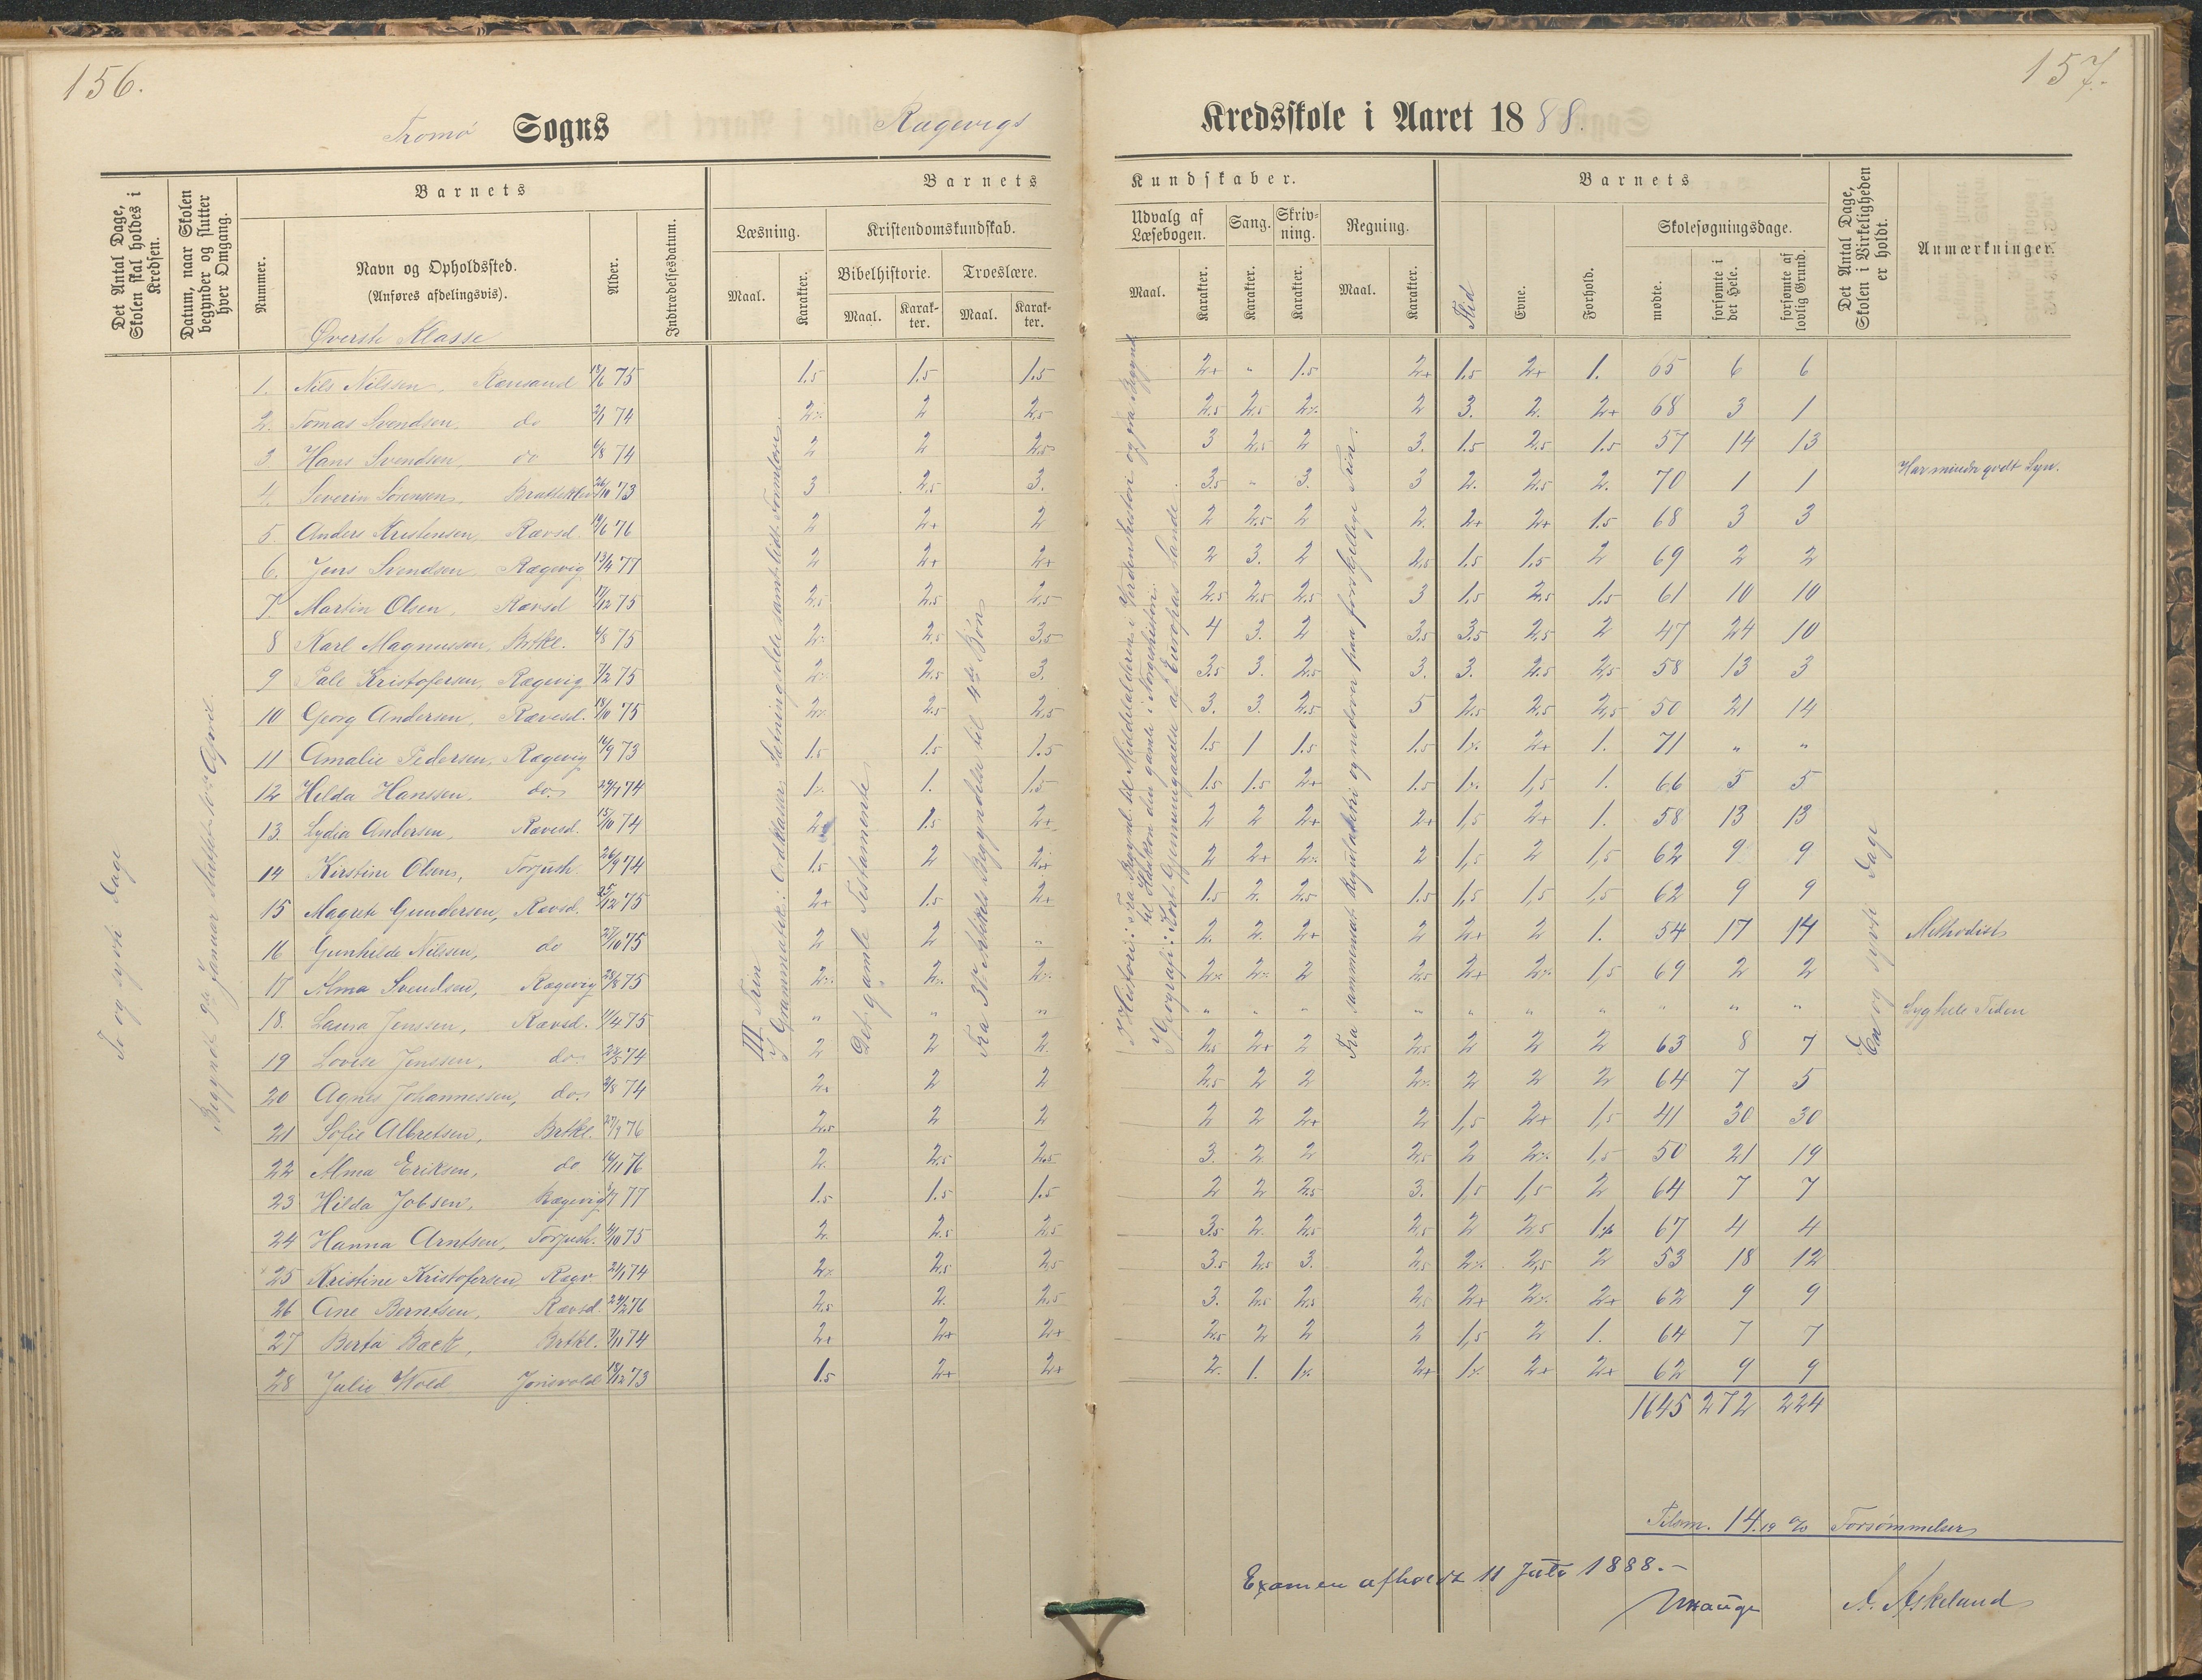 156.
157.
Tromø Sogns Ragevigs Kredsskole i Aaret 1888.
Det Antal Dage, Skolen skal holdes i Kredsen.
Datum, naar Skolen begynder og slutter hver Omgang.
Barnets
Nummer.
Navn og Opholdssted.
(Anføres afdelingsvis).
Alder.
Indtrædelsesdatum.
Barnets Kundskaber.
Læsning.
Maal.
Karakter.
Kristendomskundskab.
Bibelhistorie.
Maal.
Karakter.
Troeslære.
Maal.
Karakter.
Udvalg af Læsebogen.
Maal.
Karakter.
Sang.
Karakter.
Skrivning.
Karakter.
Regning.
Maal.
Karakter.
Barnets
Flid
Evne.
Forhold.
Skolesøgningsdage.
mødte.
forsømte i det Hele.
forsømte af lovlig Grund.
Det Antal Dage, Skolen i Virkeligheden er holdt.
Anmærkninger.
Øverste Klasse
To og sytti Dage
III Trin
Det gamle Testamente
En og sytti Dage
1. Nils Nilssen, Rævsand 18/6 75 1.5 1.5 1.5 2+ " 1.5 2+ 1.5 2+ 1. 65 6 6
2. Tomas Svendsen, do 2/1 74 2% 2 2.5 2.5 2.5 2% 2 3. 2. 2+ 68 3 1
3 Hans Svendsen, do 6/8 74 2 2 2.5 3 2.5 2 3. 1.5 2.5 1.5 57 14 13
4. Severin Sørensen, Bratteklev 26/10 73 3 2.5 3. 3.5 " 3. 3 2. 2.5 2. 70 1 1 Har mindre godt Syn.
5. Anders Kristensen, Rævsd. 19/6 76 2 2+ 2 2 2.5 2 2. 2+ 2+ 1.5 68 3 3
6. Jens Svendsen Ragevig 13/4 77 2 2+ 2+ 2 3. 2 2.5 1.5 1.5 2 69 2 2
7. Martin Olsen, Rævsd 17/12 75 2.5 2.5 2.5 2.5 2.5 2.5 3 1.5 2.5 1.5 61 10 10
8 Karl Magnussen, Brtkl. 6/8 75 2% 2.5 3.5 4 3. 2 3.5 3.5 2.5 2 47 24 10
9 Pale Kristofersen, Ragevig 7/2 75 2% 2.5 3. 3.5 3. 2.5 3. 3. 2.5 2.5 58 13 3
10 Georg Andersen, Rævesd. 18/10 75 2% 2.5 2.5 3. 3. 2.5 5 2.5 2.5 2.5 50 21 14
11 Amalie Pedersen, Ragevig 16/9 73 1.5 1.5 1.5 1.5 1 1.5 1.5 1% 2+ 1. 71 " "
12 Hilda Hanssen, do. 29/7 74 1% 1. 1.5 1.5 1.5 2+ 1.5 1% 1,5 1. 66 5 5
13. Lydia Andersen, Rævesd. 15/10 74 2 1.5 2+ 2 2 2+ 2+ 1,5 2+ 1. 58 13 13
14 Kirstine Olsen, Torjush. 26/9 74 1.5 2 2+ 2 2+ 2% 2 1,5 2 1,5 62 9 9
15 Magrete Gundersen, Rævsd. 25/12 75 2+ 1.5 2+ 1.5 2. 2.5 1.5 1,5 1,5 1,5 62 9 9
16 Gunhilde Nilssen, do 27/10 75 2 2 " 2. 2. 2+ 2 2+ 2 1. 54 17 14 Methodist
17 Alma Svendsen, Ragevig 28/8 75 2% 2% 2% 2% 2% 2 2.5 2+ 2% 1,5 69 2 2
18. Laura Jenssen, Rævsd. 11/4 75 " " " " " " " " " " " " " Syg hele Tiden
19 Lovise Jenssen, do. 22/5 74 2 2 2. 2.5 2+ 2 2.5 2 2 2 63 8 7
20 Agnes Johannessen, do. 3/8 74 2+ 2 2 2.5 2 2 2% 2 2 2 64 7 5
21 Sofie Albretsen, Brtkl. 27/9 76 2.5 2 2 2 2 2+ 2 1,5 2+ 1,5 41 30 30
22 Alma Eriksen, do 16/11 76 2. 2.5 2.5 3. 2 2 2.5 2 2% 1,5 50 21 19
23 Hilda Jobsen, Ragevig 5/1 77 1.5 1.5 1.5 2 2 2.5 3. 1,5 1,5 2 64 7 7
24 Hanna Arntsen, Torjush. 4/10 75 2. 2.5 2.5 3.5 2. 2.5 2.5 2 2.5 1% 67 4 4
25 Kristine Kristofersen Ragv. 24/1 74 2% 2.5 2.5 3.5 2.5 3. 2.5 2% 2.5 2 53 18 12
26 Ane Berntsen, Rævsd. 24/2 76 2.5 2. 2.5 3. 2.5 2.5 2.5 2+ 2% 2+ 62 9 9
27 Berta Bæck, Brtkl. 7/11 74 2+ 2+ 2+ 2.5 2 2 2 1,5 2 1. 64 7 7
28 Julie Wold Jorisvold 18/12 73 1.5 2+ 2+ 2. 1. 1% 2+ 1% 2+ 2+ 62 9 9
1645 272 224
Tilsm. 14.19 % Forsømmelser
Examen afholdt 11 Juli 1888.-
A. Askeland